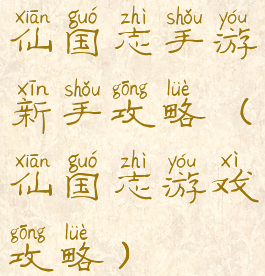 xiān guó zhì shǒu yóu
仙国志手游
xīn shǒu gōng lüè
新手攻略（
xiān guó zhì yóu xì
仙国志游戏
gōng lüè
攻略）